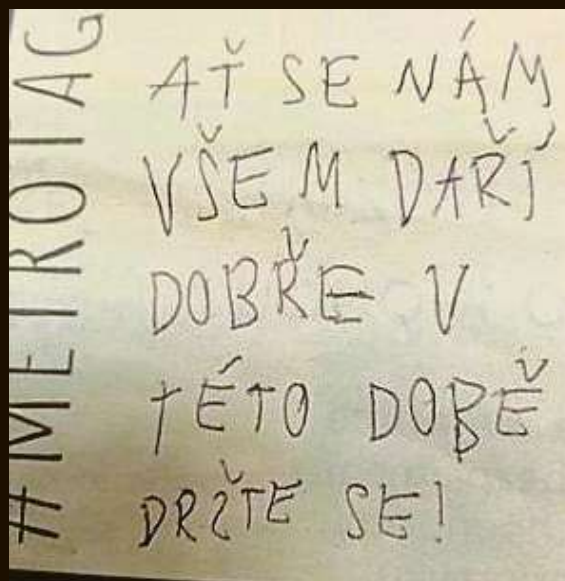 #METROTAG
AŤ SE NÁM
VŠEM DAŘÍ
DOBŘE V
TÉTO DOBĚ
DRŽTE SE!